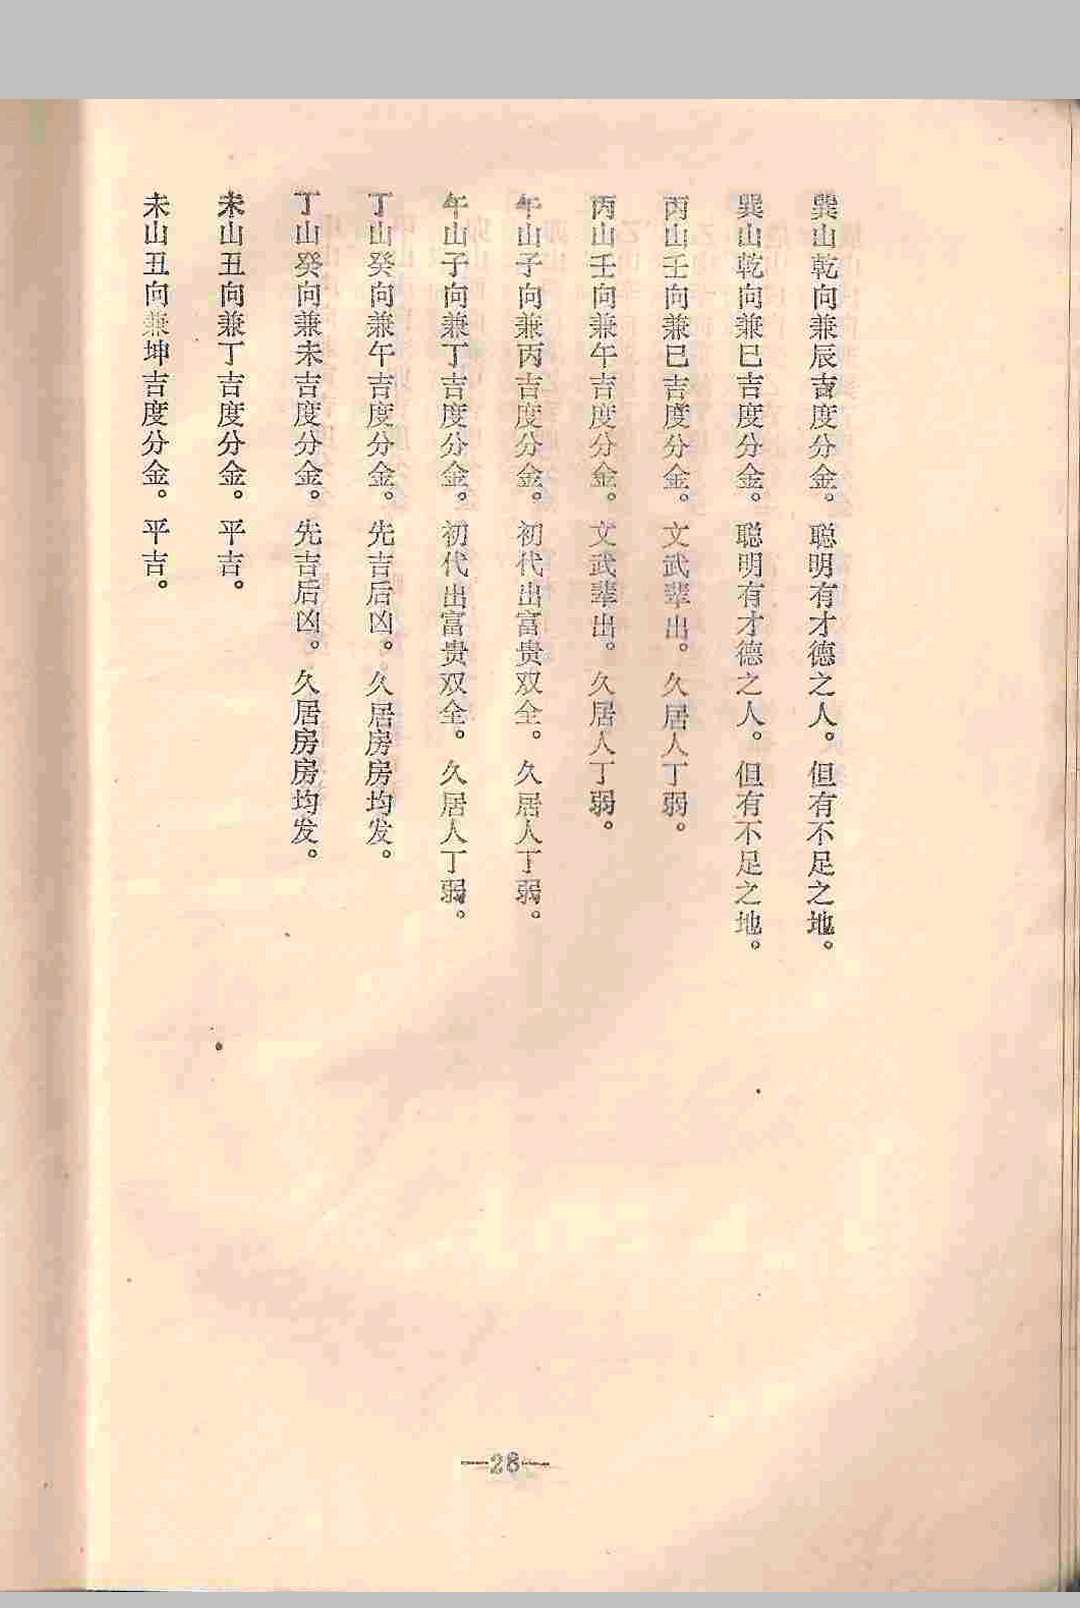 巽山乾向兼辰吉度分金。聪明有才德之人。但有不足之地。
巽山乾向兼巳吉度分金。聪明有才德之人。但有不足之地。
丙山壬向兼巳吉度分金。文武辈出。久居人丁弱。
丙山壬向兼午吉度分金。文武辈出。久居人丁弱。
午山子向兼丙吉度分金。初代出富贵双全。久居人丁弱。
午山子向兼丁吉度分金。初代出富贵双全。久居人丁弱。
丁山癸向兼午吉度分金。先吉后凶。久居房房均发。
丁山癸向兼未吉度分金。先吉后凶。久居房房均发。
未山丑向兼丁吉度分金。平吉。
未山丑向兼坤吉度分金。平吉。
—28—